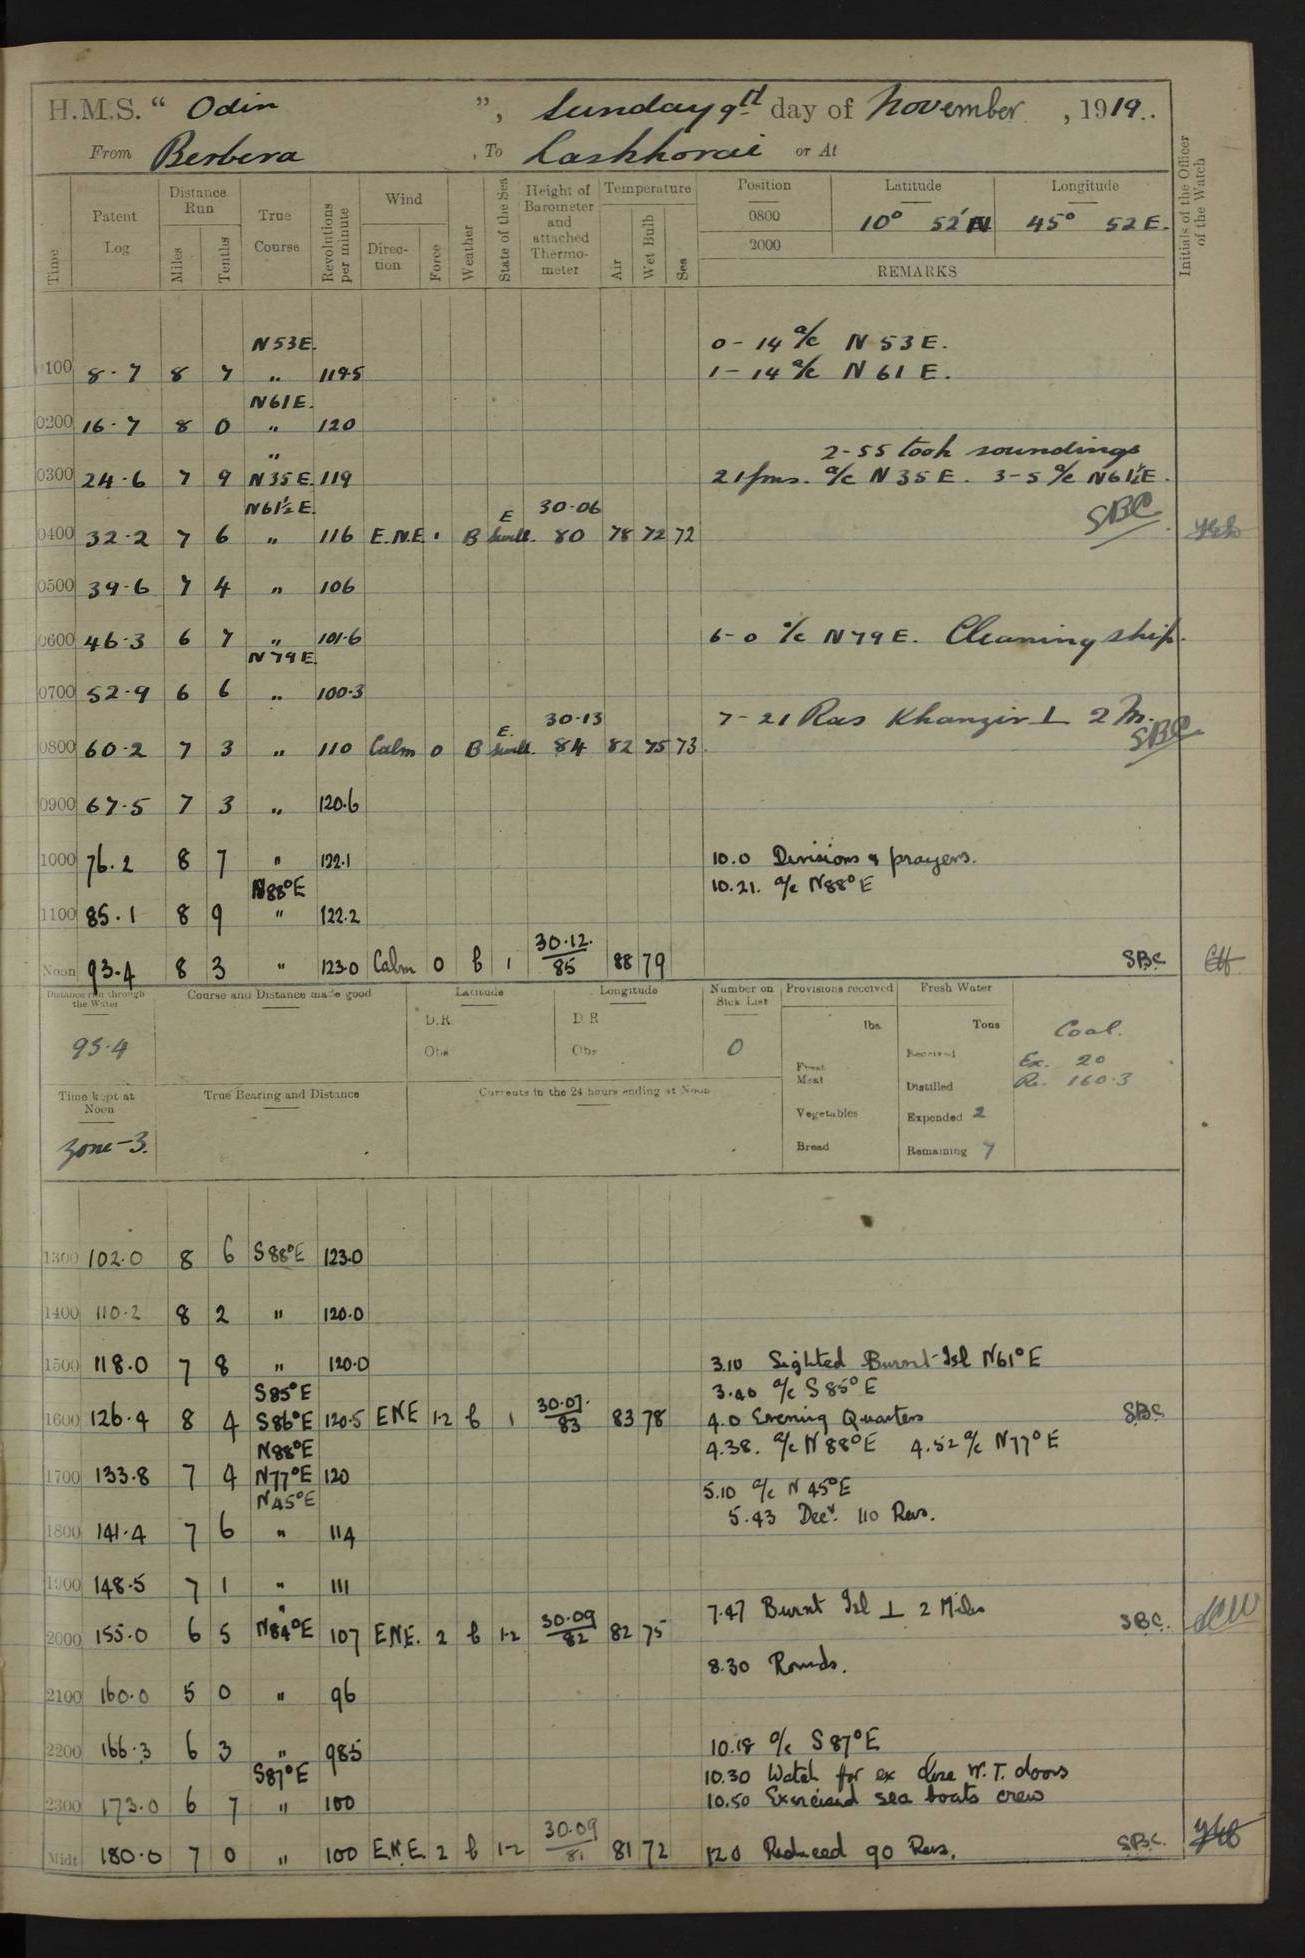 H.M.S. “ Odin ”, Sunday 9th day of November , 1919.
From Berbera , To Laskhorai or At
Time Patent Log Distance Run Miles Tenths True Course Revolutions per minute Wind Direc-tion Force Weather State of the Sea Height of Barometer and attached Thermo-meter Temperature Air Wet Bulb Sea Position 0800 2000 Latitude 10° 52' N Longitude 45° 52 E. REMARKS Initials of the Officer of the Watch
N 53 E. 0 - 14 a/c N 53 E.
0100 8·7 8 7 " 119·5 1 - 14 a/c N 61 E.
N 61 E.
0200 16·7 8 0 " 120
" 2-55 took soundings
0300 24·6 7 9 N 35 E. 119 21 fms. a/c N 35 E. 3-5 a/c N 61½ E.
N 61½ E. E 30·06 SBC
0400 32·2 7 6 " 116 E.N.E. 1 B Swell. 80 78 72 72
0500 39·6 7 4 " 106
0600 46·3 6 7 " 101·6 6-0 a/c N 79 E. Cleaning ship.
N 79 E.
0700 52·9 6 6 " 100·3
E. 30·13 7-21 Ras Khanzir ⊥ 2 M.
0800 60·2 7 3 " 110 Calm 0 B Swell. 84 82 75 73 SBC
0900 67·5 7 3 " 120·6
1000 76.2 8 7 " 122.1 10.0 Divisions & prayers.
N88°E 10.21. a/c N88°E
1100 85.1 8 9 " 122.2
Noon 93.4 8 3 " 123.0 Calm 0 b 1 30.12. 85 88 79 SBC
Distance run through the Water 93·4
Course and Distance made good
Latitude D.R. Obs
Longitude D.R. Obs
Number on Sick List 0
Provisions received lbs. Fresh Meat Vegetables Bread
Fresh Water Tons Received Distilled Expended 2 Remaining 7
Coal. Ex. 20 Re. 160·3
Time kept at Noon Zone -3.
True Bearing and Distance
Currents in the 24 hours ending at Noon
1300 102.0 8 6 S88°E 123.0
1400 110·2 8 2 " 120.0
1500 118.0 7 8 " 120.0 3.10 Sighted Burnt Isl N61°E
S85°E 3.40 a/c S85°E
1600 126.4 8 4 S86°E 120.5 ENE 1-2 b 1 30.07. 83 83 78 4.0 Evening Quarters SBC
N88°E 4.38. a/c N88°E 4.52 a/c N77°E
1700 133.8 7 4 N77°E 120
N45°E 5.10 a/c N45°E
1800 141.4 7 6 " 114 5.43 Decd. 110 Revs.
1900 148.5 7 1 " 111
" 7.47 Burnt Isl ⊥ 2 Miles
2000 155.0 6 5 N84°E 107 ENE. 2 b 1-2 30.09 82 82 75 SBC.
8.30 Rounds.
2100 160.0 5 0 " 96
2200 166.3 6 3 " 98.5 10.18 a/c S87°E
S87°E 10.30 Watch for ex close W.T. doors
2300 173.0 6 7 " 100 10.50 Exercised sea boats crew
Midt 180.0 7 0 " 100 E.N.E. 2 b 1-2 30.09 81 81 72 12.0 Reduced 90 Revs. SBC.